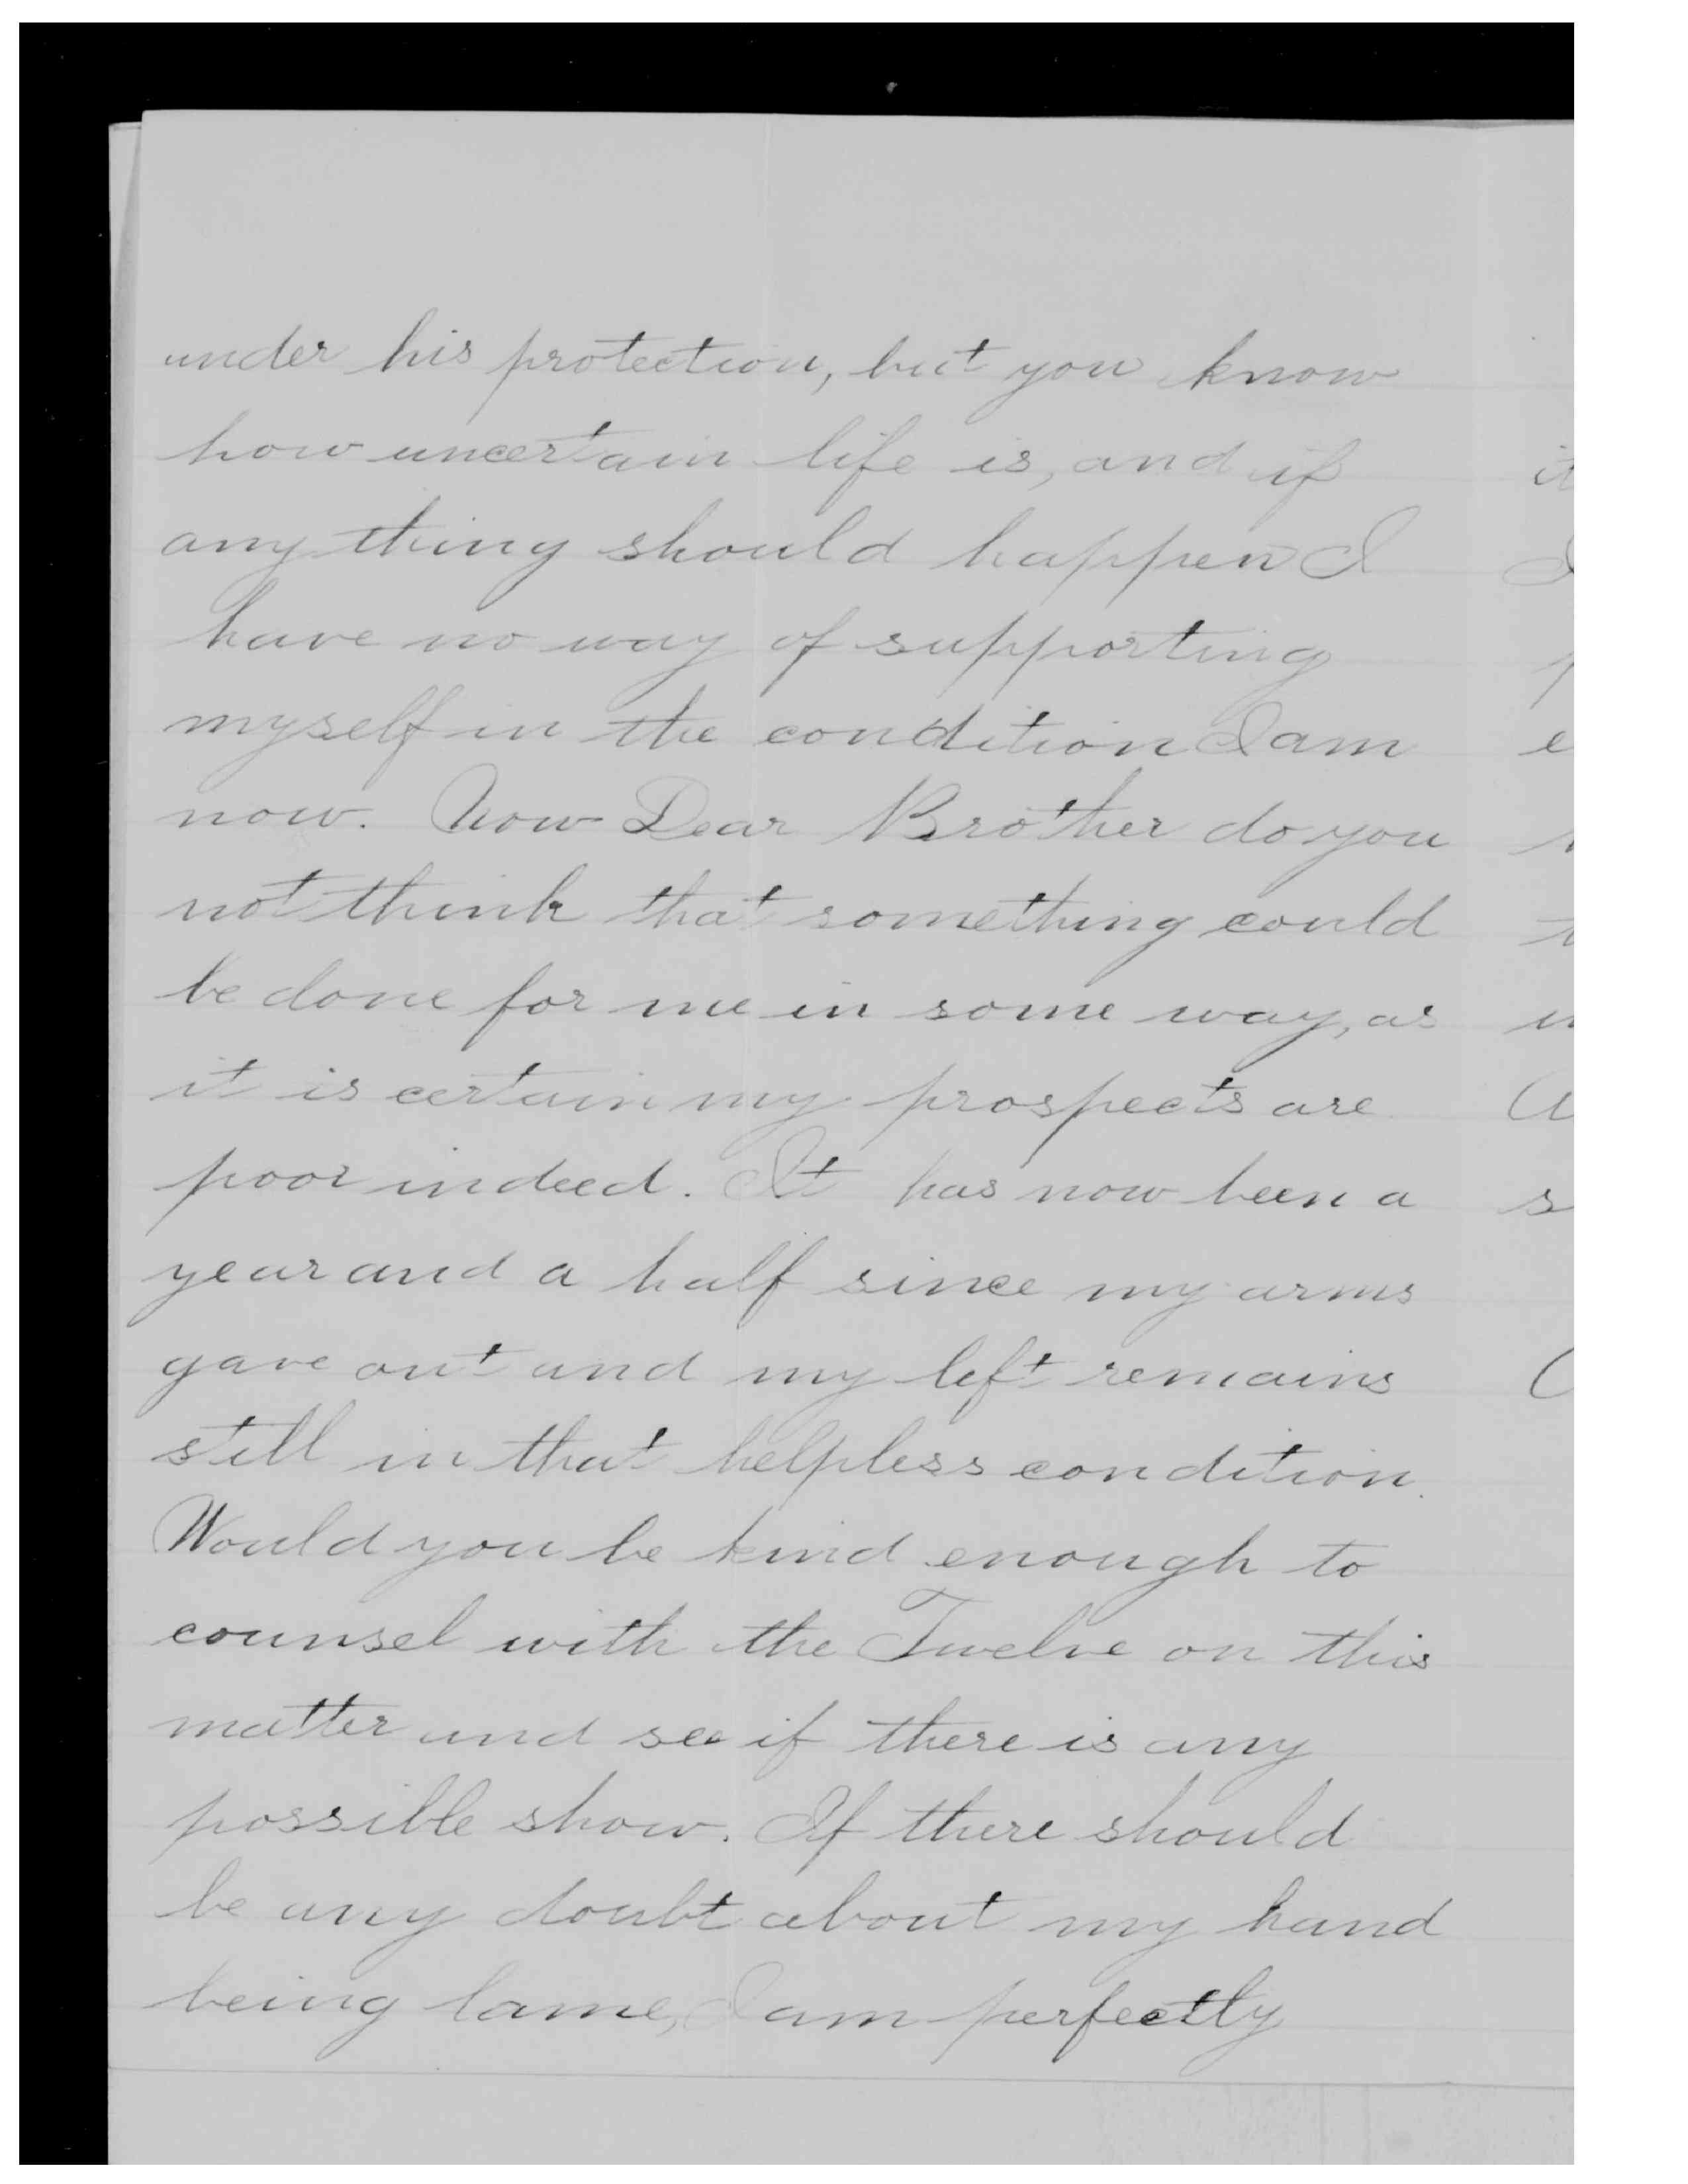 under his protection, but you know
how uncertain life is, and if
any thing should happen I
have no way of supporting
myself in the condition I am
now. Now Dear Brother do you
not think that something could
be done for me in some way, as
it is certain my prospects are
poor indeed. It has now been a
year and a half since my arms
gave out and my left remains
still in that helpless condition.
Would you be kind enough to
counsel with the Twelve on this
matter and see if there is any
possible show. If there should
be any doubt about my hand
being lame, I am perfectly